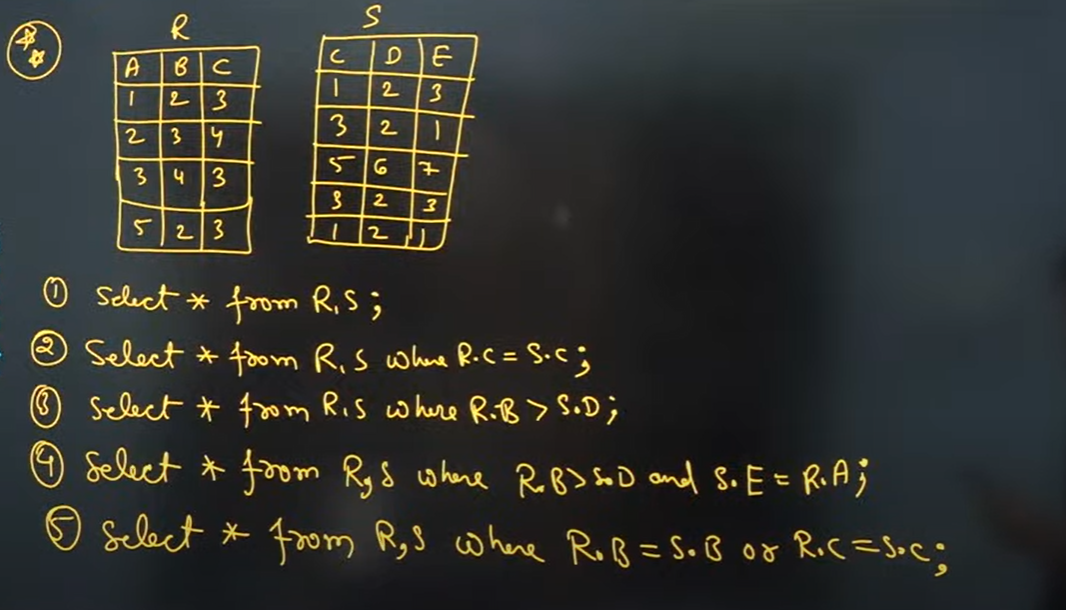 R S
A B C C D E
1 2 3 1 2 3
2 3 4 3 2 1
3 4 3 5 6 7
5 2 3 3 2 3
1 2 1
① Select * from R, S ;
② Select * from R, S where R.C = S.C ;
③ Select * from R, S where R.B > S.D ;
④ Select * from R, S where R.B > S.D and S.E = R.A ;
⑤ Select * from R, S where R.B = S.B or R.C = S.C ;